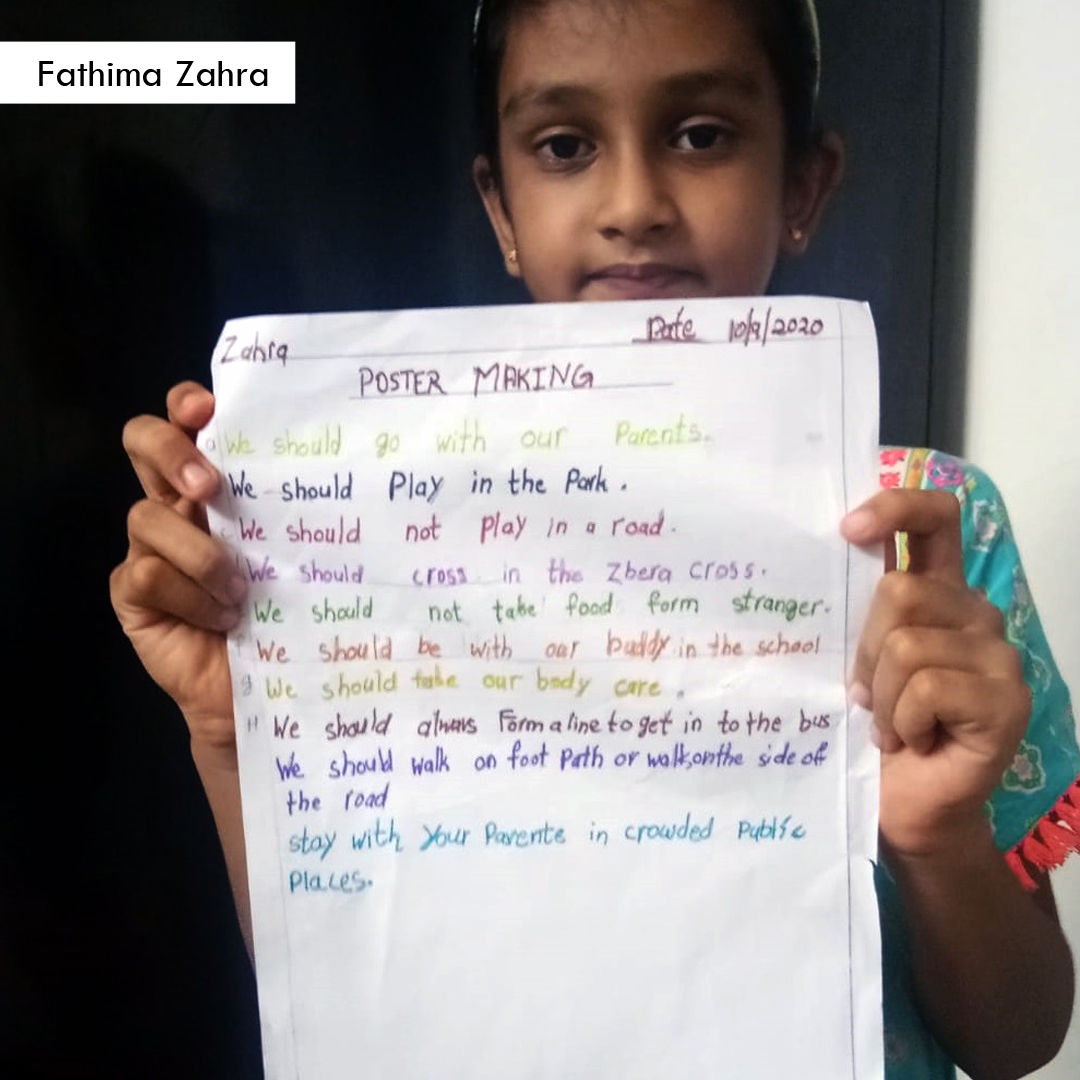 Fathima Zahra
Zahra
Date 10/9/2020
POSTER MAKING
a We should go with our Parents.
We should Play in the Park.
c We should not play in a road.
We should cross in the Zbera cross.
We should not take food form stranger.
We should be with our buddy in the school
g We should take our body care.
H We should always Form a line to get in to the bus
We should walk on foot path or walk, on the side off
the road
stay with your Parente in crowded public
places.